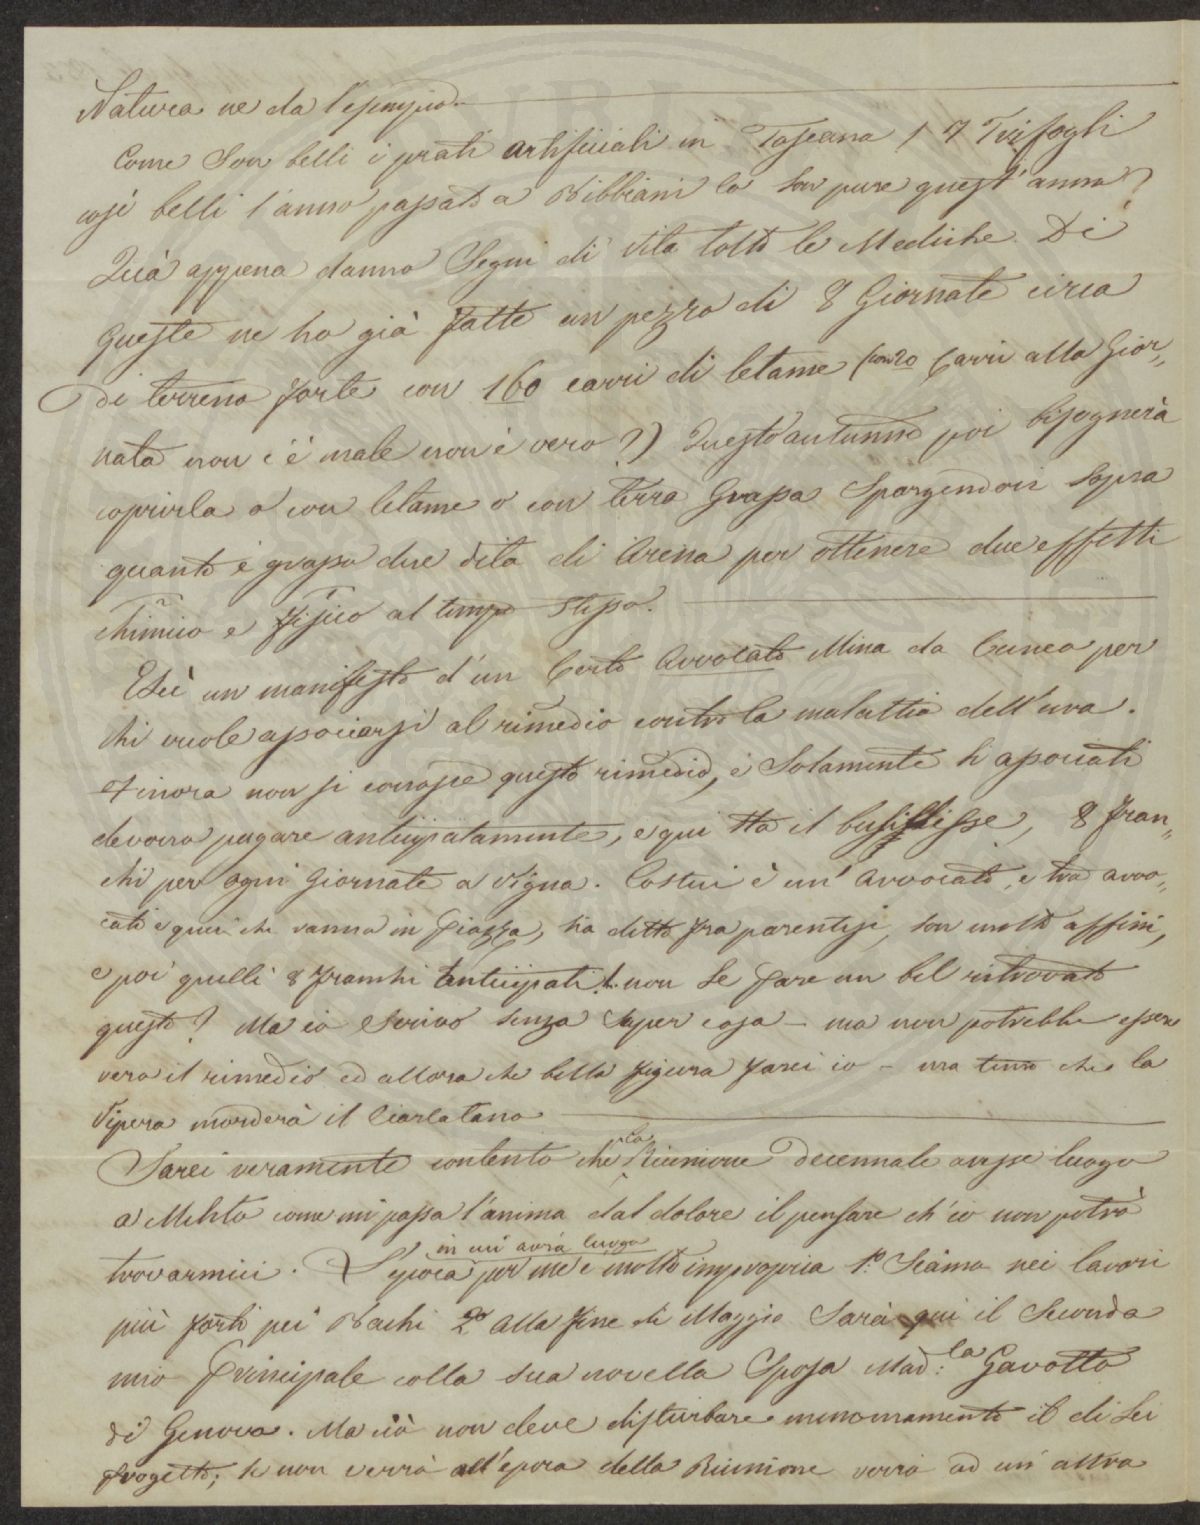 Natura ne da l'esempio.
Come son belli i prati artificiali in Toscana! I Trifogli
così belli l'anno passato a Bibbiani lo son pure quest'anno?
Quà appena danno Segni di vita tolto le Mediche. Di
queste ne ho già fatte un pezzo di 8 Giornate circa
di terreno forte con 160 carri di letame (con 20 Carri alla Gior„
nata non c'è male non è vero?) Quest'autunno poi bisognerà
coprirla o con letame o con terra Grassa Spargendovi sopra
quanto è grosso due dita di Arena per ottenere due effetti
chimico e fisico al tempo stesso.
Escì un manifesto d'un Certo Avvocato Mina da Cuneo per
chi vuole associarsi al rimedio contro la malattia dell'uva.
Finora non si conosce questo rimedio, e Solamente li associati
devono pagare anticipatamente, e qui sta il busillisse, 8 fran„
chi per ogni Giornate a vigna. Costui è un' Avvocato, e tra avvo„
cati e quei che vanno in Piazza, sia detto fra parentesi, son molto affini,
e poi quelli 8 franchi anticipati! non Le pare un bel ritrovato
questo? Ma io Scrivo senza Saper cosa – ma non potrebbe essere
vero il rimedio ed allora che bella figura farei io – ma temo che la
Vipera morderà il Ciarlatano
Sarei veramente contento che la Riunione decennale avesse luogo
a Meleto come mi passa l'anima dal dolore il pensare ch'io non potrò
trovarmici. L'epoca in cui avrà luogo per me è molto impropria 1.o Siamo nei lavori
più forti pei Bachi 2.o Alla fine di Maggio Sarà qui il Secondo
mio Principale colla sua novella Sposa Mad:la Gavotto
di Genova. Ma ciò non deve disturbare menomamente il di Lei
progetto; Se non verrò all'epoca della Riunione verrò ad un'altra